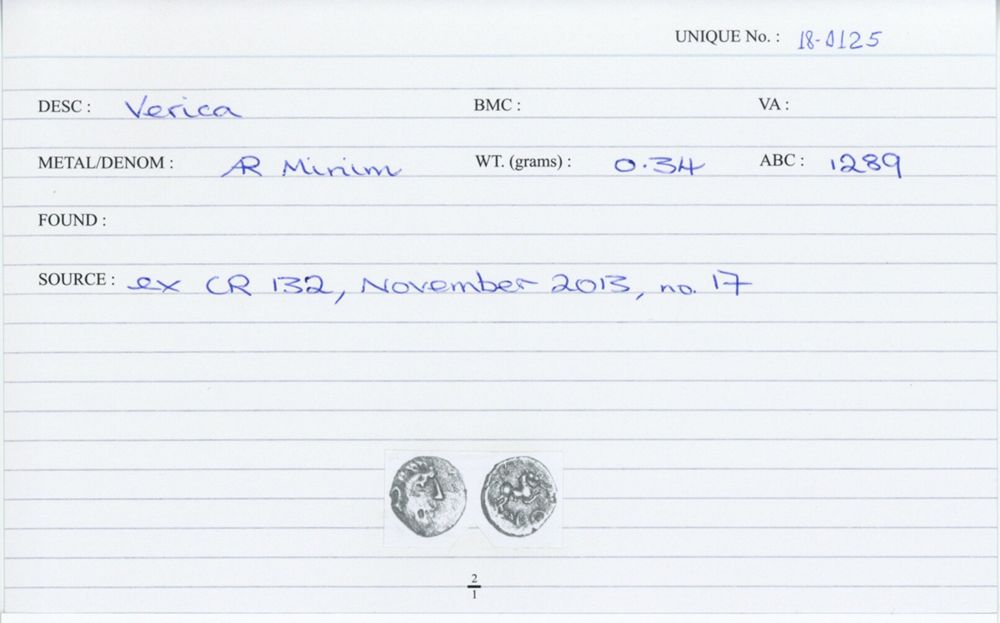 UNIQUE No. : 18-0125
DESC : Verica BMC : VA :
METAL/DENOM : AR Minim WT. (grams) : 0.34 ABC : 1289
FOUND :
SOURCE : ex CR 132, November 2013, no. 17
2
1